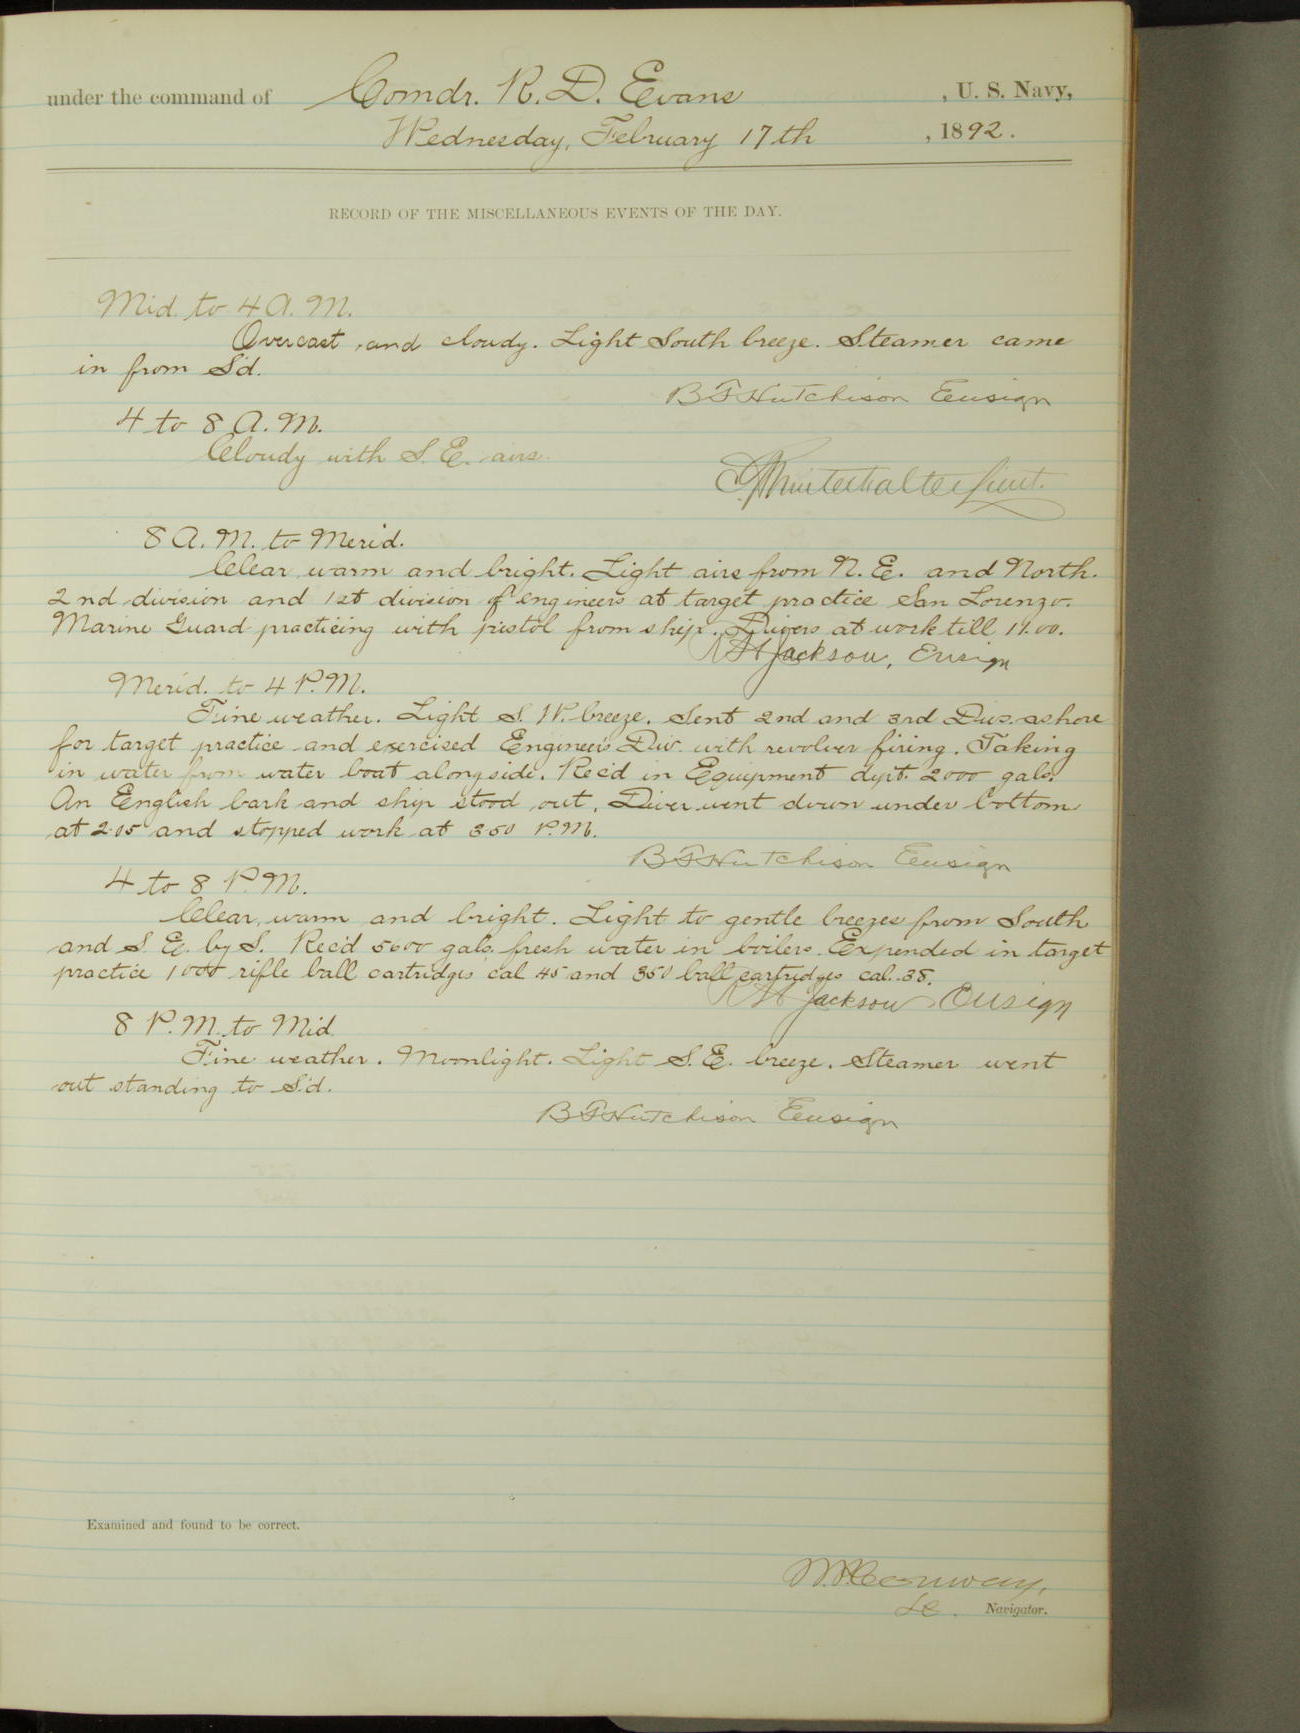 under the command of Comdr. R. D. Evans , U. S. Navy,
Wednesday, February 17th , 1892.
RECORD OF THE MISCELLANEOUS EVENTS OF THE DAY.
Mid. to 4 A. M.
Overcast and cloudy. Light South breeze. Steamer came
in from S'd.
B F Hutchison Ensign
4 to 8 A. M.
Cloudy with S. E. airs.
Winterhalter Lieut.
8 A. M. to Merid.
Clear warm and bright. Light airs from N. E. and North.
2nd division and 1st division of engineers at target practice San Lorenzo.
Marine Guard practicing with pistol from ship. Divers at work till 11.00.
Jackson, Ensign
Merid. to 4 P. M.
Fine weather. Light S. W. breeze. Sent 2nd and 3rd Divs. ashore
for target practice and exercised Engineer's Div. with revolver firing. Taking
in water from water boat alongside. Rec'd in Equipment dept. 2000 gals.
An English bark and ship stood out. Diver went down under bottom
at 2.05 and stopped work at 3.50 P.M.
B F Hutchison Ensign
4 to 8 P. M.
Clear, warm and bright. Light to gentle breezes from South
and S. E. by S. Rec'd 5600 gals. fresh water in boilers. Expended in target
practice 1000 rifle ball cartridges cal 45 and 350 ball cartridges cal. .38.
Jackson Ensign
8 P. M. to Mid
Fine weather. Moonlight. Light S. E. breeze. Steamer went
out standing to S'd.
B F Hutchison Ensign
Examined and found to be correct.
Conway,
Navigator.